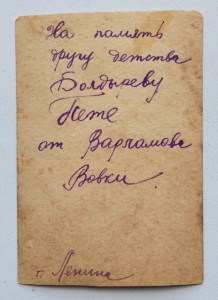 На память
другу детства
Болдыреву
Пете
от Варламова
Вовки.
г. Ленина